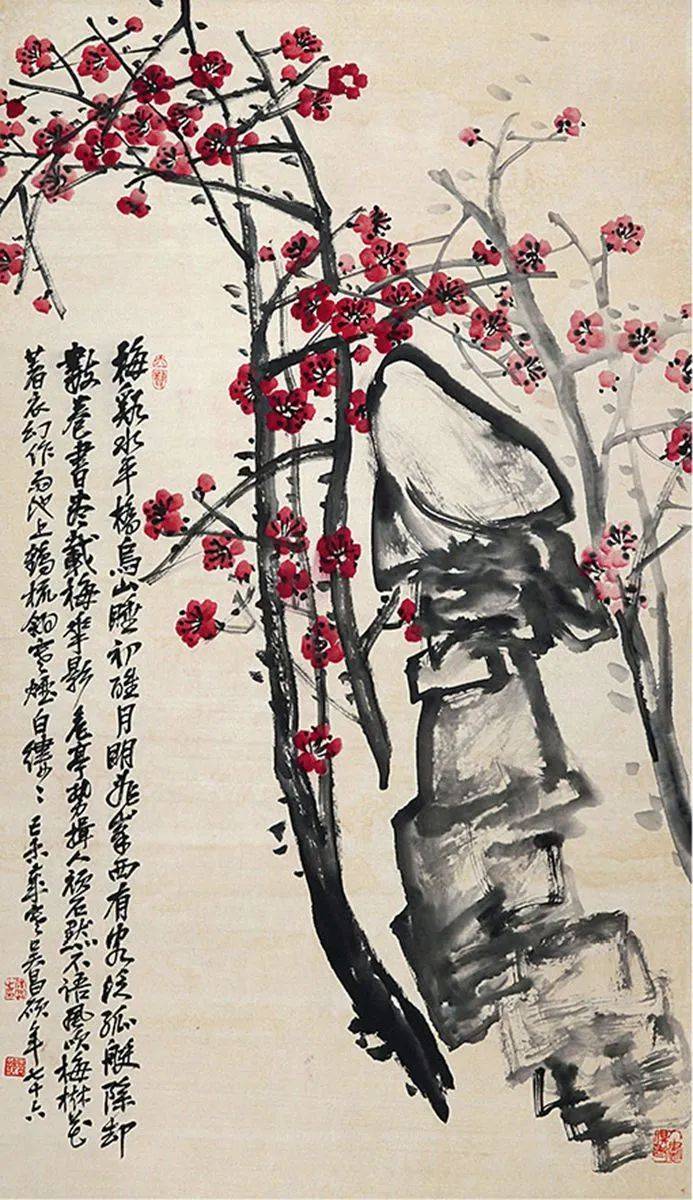 梅谿水平橋烏山睡初醒月明亂峯西有客泛孤艇除却
數卷書盡載梅華影危亭勢揖人頑石默不語風吹梅樹花
著衣幻作雨池上鶴梳翎寒煙白縷〻己未歲寒吳昌碩年七十六